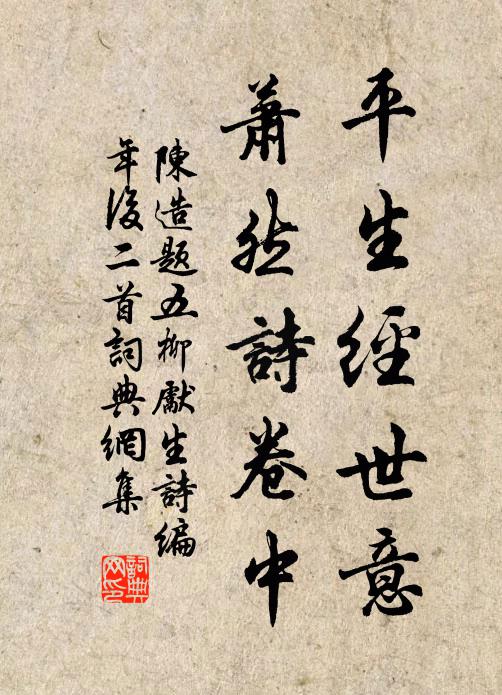 平生經世意
蕭然詩卷中
陳造題五柳獻生詩編
年後二首詞典網集
詞典網印